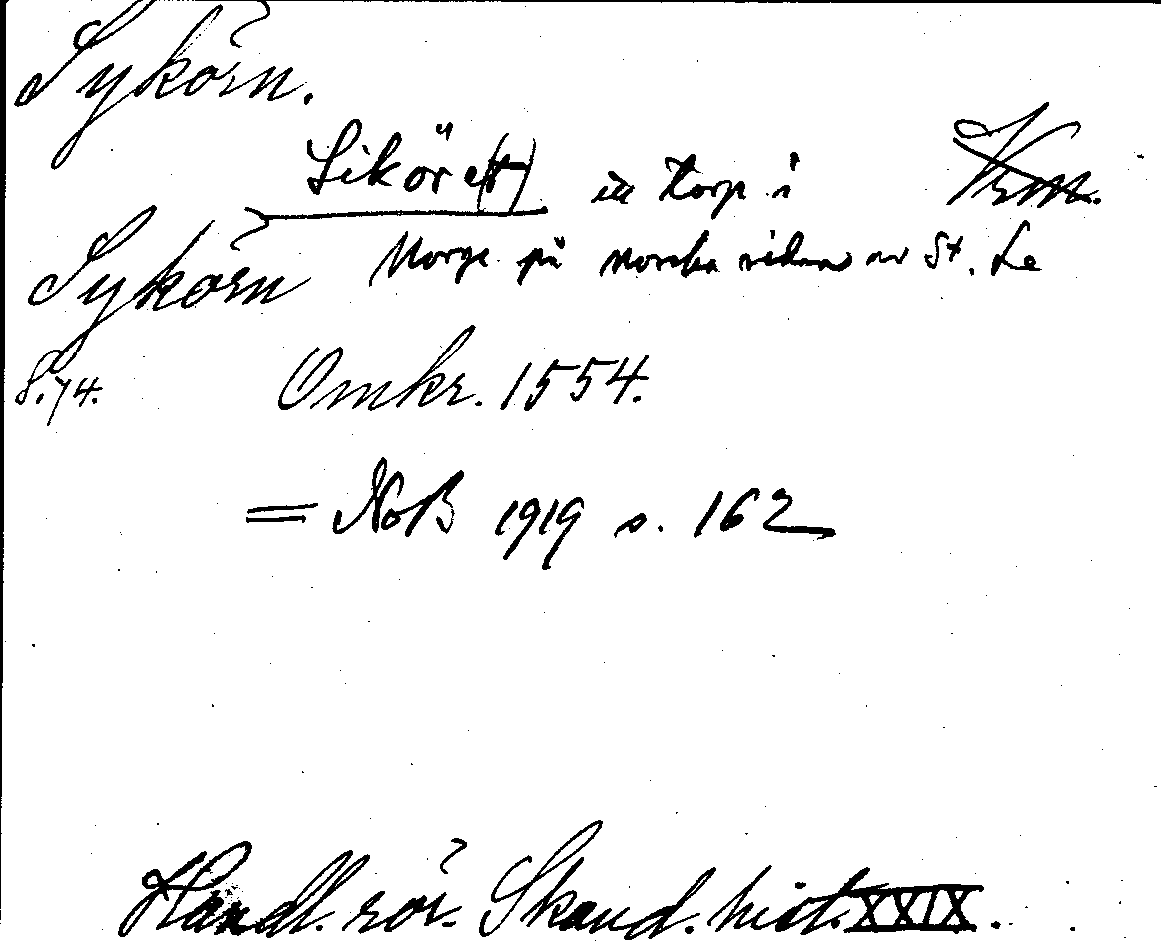 Sykörn.
Siköre(t) en torp i Vrm.
Sykörn Norge på norska sidan av St. Le
S. 74. Omkr. 1554.
= NoB 1919 s. 162
Handl. rör. Skand. hist. XXIX.